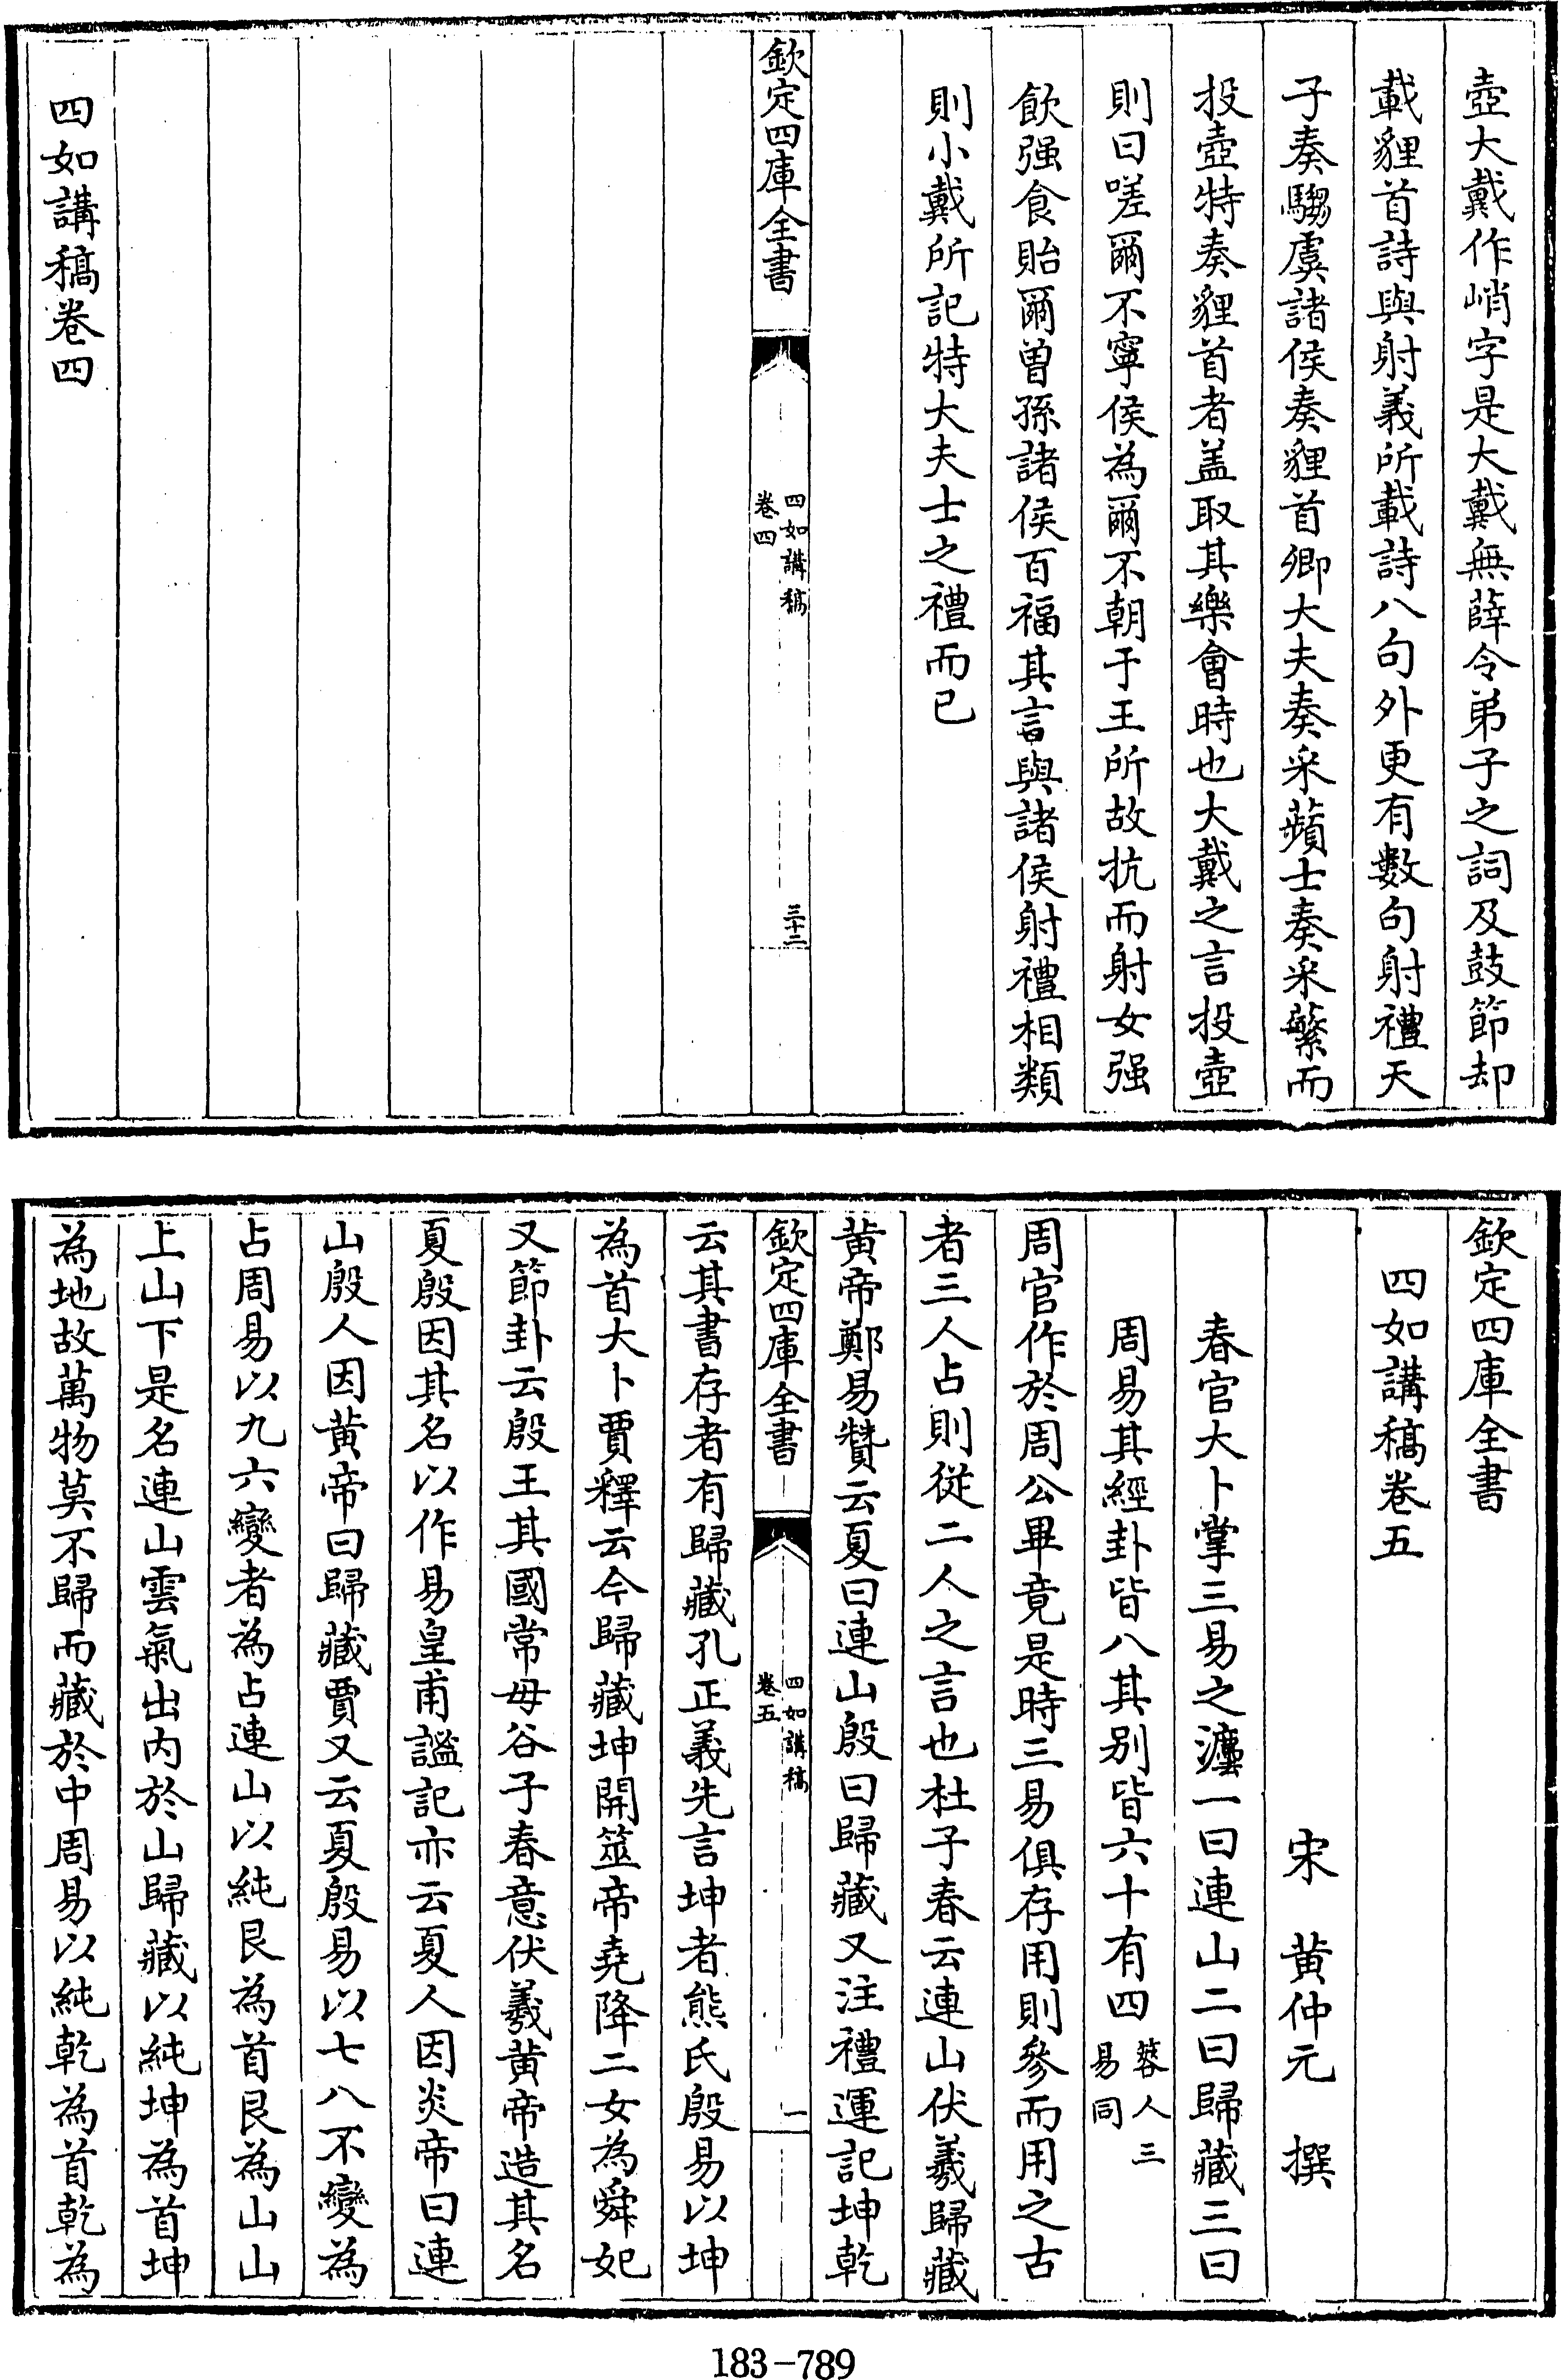 壺大戴作峭字是大戴無薛令弟子之詞及鼓節却
載貍首詩與射義所載詩八句外更有數句射禮天
子奏騶虞諸侯奏貍首卿大夫奏采蘋士奏采蘩而
投壺特奏貍首者盖取其樂會時也大戴之言投壺
則曰嗟爾不寧侯為爾不朝于王所故抗而射女强
飲强食貽爾曾孫諸侯百福其言與諸侯射禮相類
則小戴所記特大夫士之禮而已
欽定四庫全書
四如講稿
卷四
三十二
四如講稿卷四
欽定四庫全書
四如講稿卷五
宋 黄仲元 撰
春官大卜掌三易之灋一曰連山二曰歸藏三曰
周易其經卦皆八其别皆六十有四
簭人三
易同
周官作於周公畢竟是時三易俱存用則參而用之古
者三人占則従二人之言也杜子春云連山伏羲歸藏
黄帝鄭易贊云夏曰連山殷曰歸藏又注禮運記坤乾
欽定四庫全書
四如講稿
卷五
一
云其書存者有歸藏孔正義先言坤者熊氏殷易以坤
為首大卜賈釋云今歸藏坤開筮帝堯降二女為舜妃
又節卦云殷王其國常毋谷子春意伏羲黄帝造其名
夏殷因其名以作易皇甫謐記亦云夏人因炎帝曰連
山殷人因黄帝曰歸藏賈又云夏殷易以七八不變為
占周易以九六變者為占連山以純艮為首艮為山山
上山下是名連山雲氣出内於山歸藏以純坤為首坤
為地故萬物莫不歸而藏於中周易以純乾為首乾為
183-789